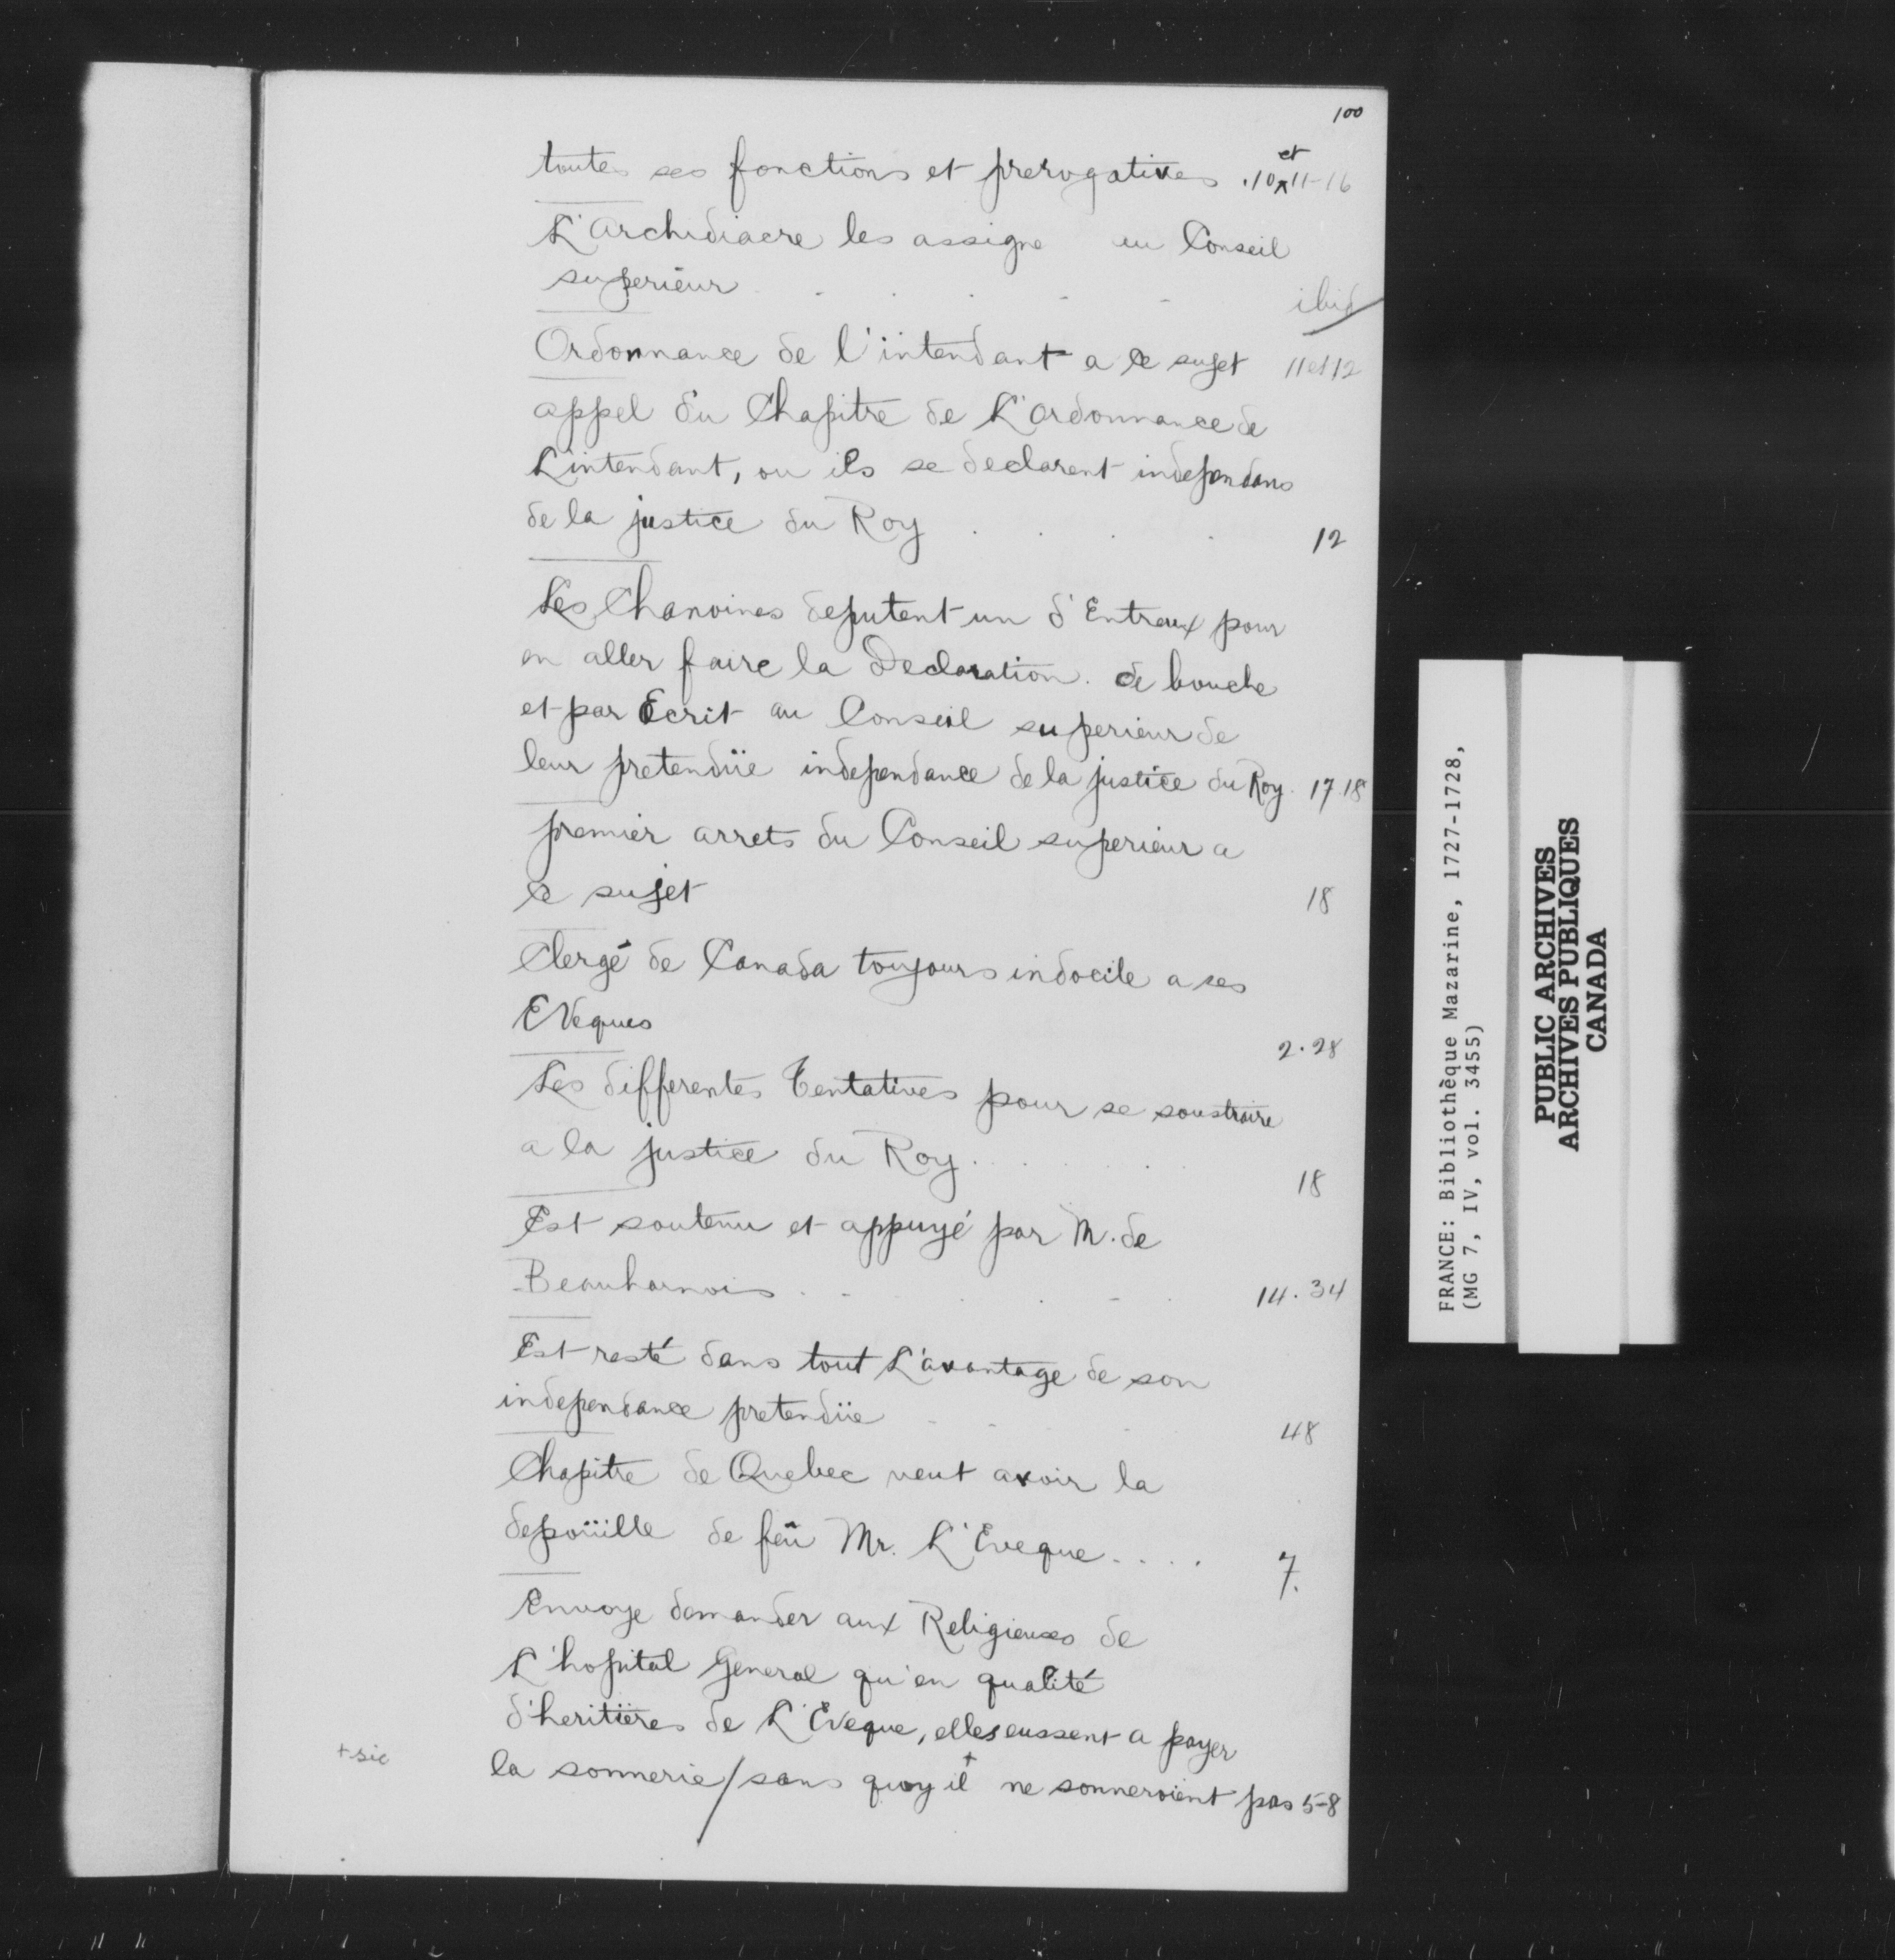 100
toutes ses fonctions et prerogatives .10 et 11-16
L'archidiacre les assigne au Conseil
superieur . . . . . ibid
Ordonnance de l'intendant a ce sujet 11 et 12
appel du Chapitre de L'ordonnance de
L'intendant, ou ils se declarent independans
de la justice du Roy . . . 12
Les Chanoines deputent un d'Entreux pour
en aller faire la Declaration. de bouche
et par Ecrit au Conseil superieur de
leur pretendüe independance de la justice du Roy. 17.18
premier arrets du Conseil superieur a
ce sujet 18
Clergé de Canada toujours indocile a ses
EVeques 2.28
Les differentes Tentatives pour se soustraire
a la justice du Roy. . . . . 18
Est soutenu et appuyé par M. de
Beauharnois . . . . . 14.34
Est resté dans tout L'avantage de son
independance pretendüe . . . 48
Chapitre de Quebec veut avoir la
depoüille de feü Mr. L'Eveque. . . . 7.
Envoye demander aux Religieuses de
L'hopital General qu'en qualité
d'heritïeres de L'Eveque, elles eussent a payer
+ sic la sonnerie/sans quoy il+ ne sonneroient pas 5-8
FRANCE: Bibliothèque Mazarine, 1727-1728,
(MG 7, IV, vol. 3455)
PUBLIC ARCHIVES
ARCHIVES PUBLIQUES
CANADA